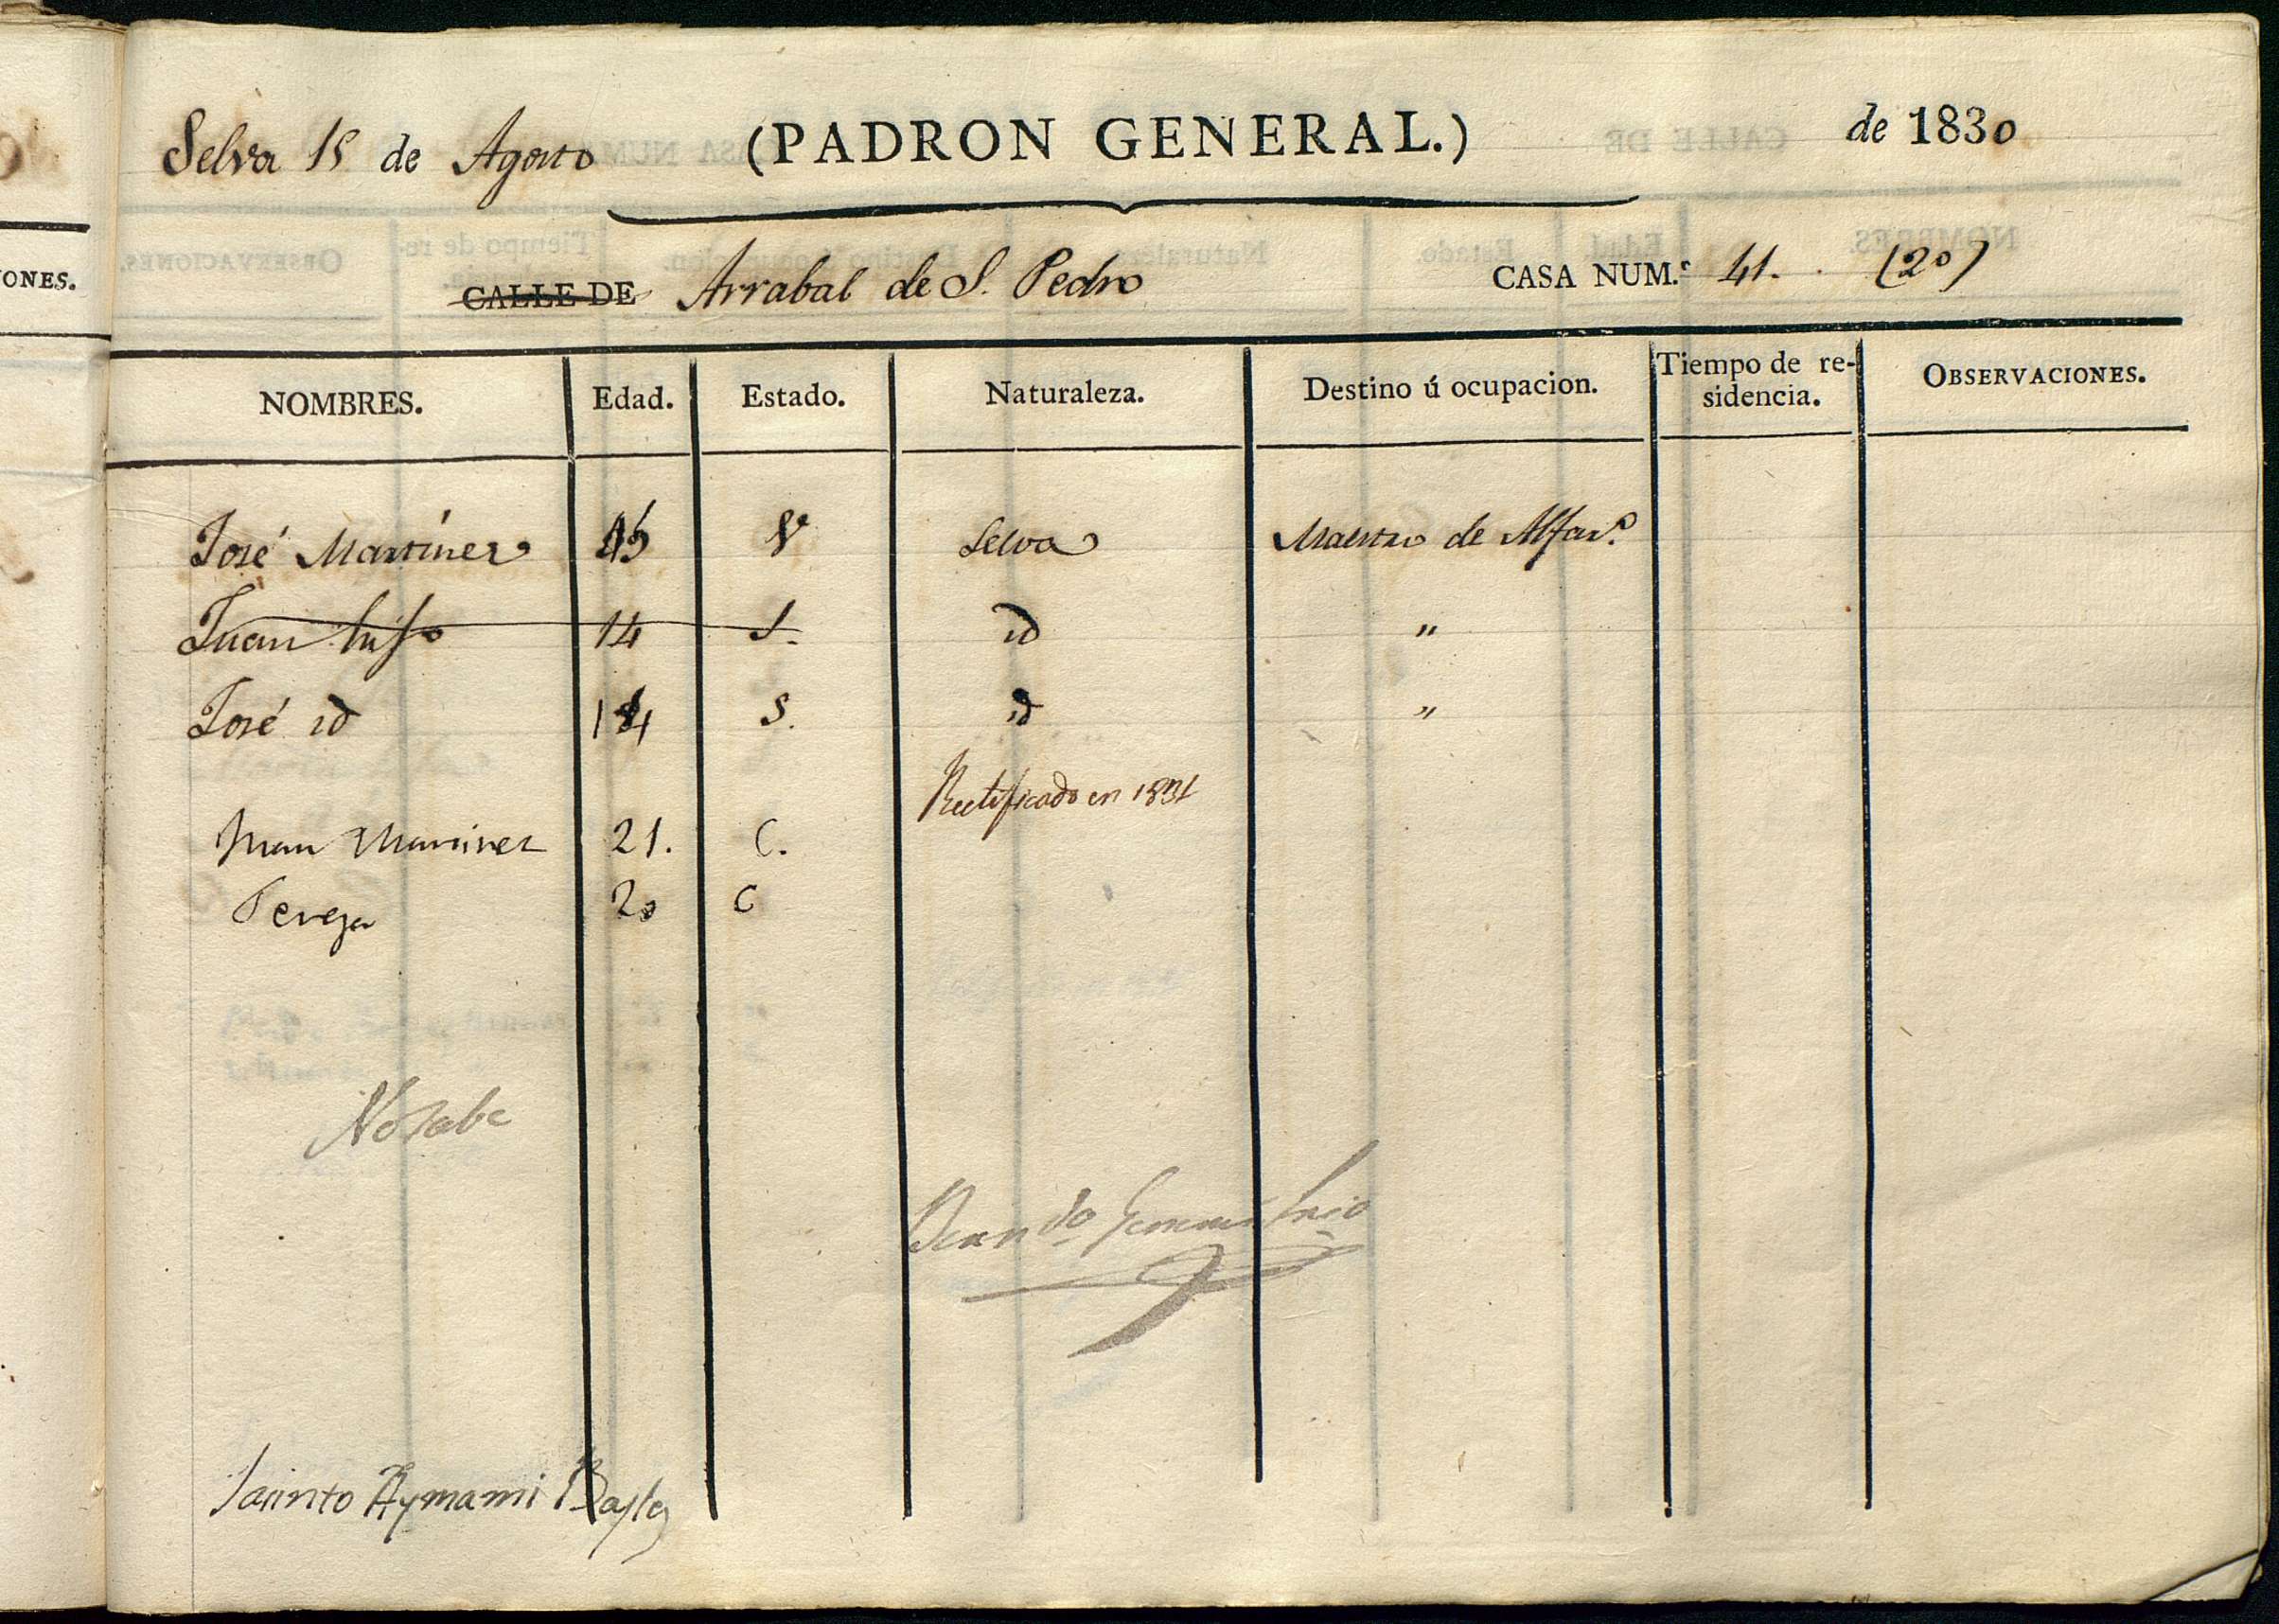 ONES.
Selva 15 de Agosto (PADRON GENERAL.) de 1830
CALLE DE Arrabal de S. Pedro CASA NUM.º 41. (20)
NOMBRES. Edad. Estado. Naturaleza. Destino ú ocupacion. Tiempo de re-
sidencia. OBSERVACIONES.
José Martinez 45 V Selva Maestro de Alfar.º
Juan hijo 14 S. id "
José id 14 S. id "
Rectificado en 1831
Juan Martinez 21. C.
Teresa 20 C
No sabe
Jacinto Aymami Bayle